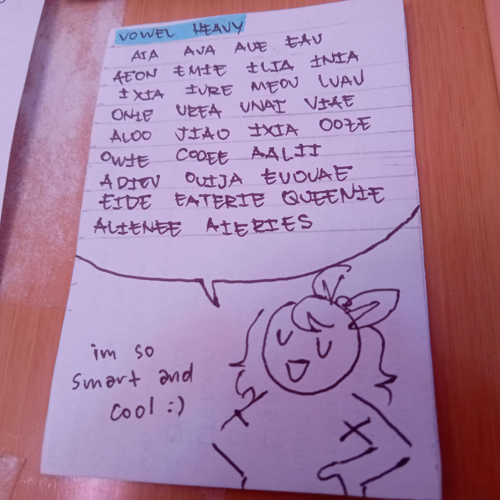 VOWEL HEAVY
AIA AVA AUE EAU
AEON EMIE ILIA INIA
IXIA IURE MEOU LUAU
ONIE UREA UNAI VIAE
ALOO JIAO IXIA OOZE
OWIE COOEE AALII
ADIEU OUIJA EUOUAE
EIDE EATERIE QUEENIE
ALIENEE AIERIES
im so
smart and
cool :)